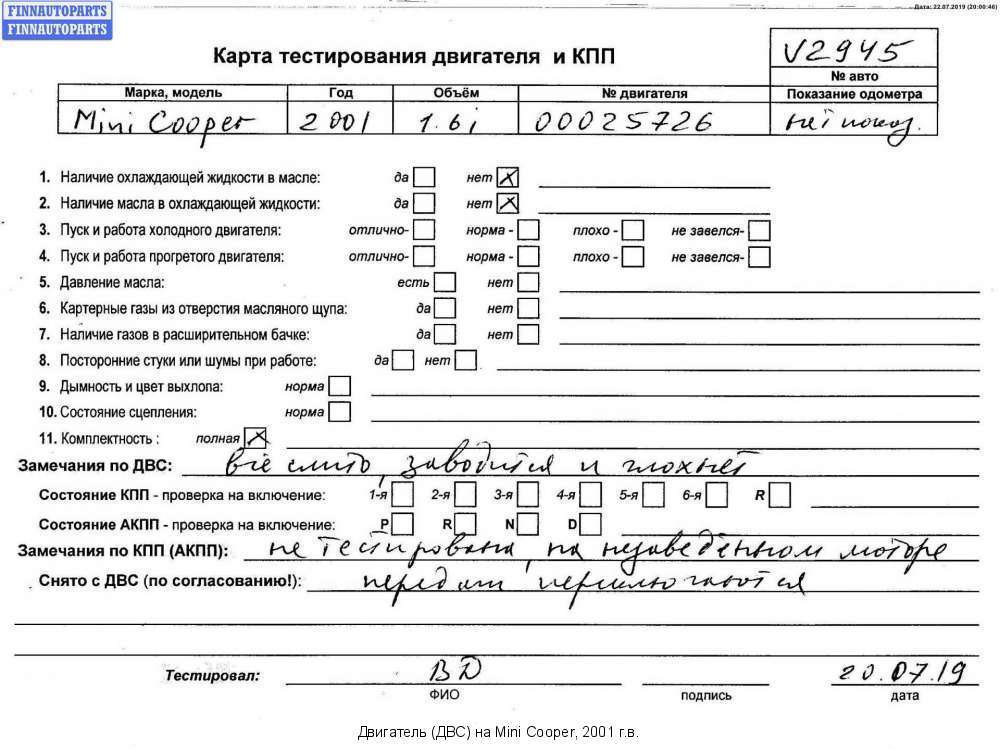 FINNAUTOPARTS
FINNAUTOPARTS
Дата: 22.07.2019 (20:00:46)
Карта тестирования двигателя и КПП
V2945
№ авто
Марка, модель Год Объём № двигателя Показание одометра
Mini Cooper 2001 1.6i 00025726 нет показ.
1. Наличие охлаждающей жидкости в масле: да нет
2. Наличие масла в охлаждающей жидкости: да нет
3. Пуск и работа холодного двигателя: отлично- норма - плохо - не завелся-
4. Пуск и работа прогретого двигателя: отлично- норма - плохо - не завелся-
5. Давление масла: есть нет
6. Картерные газы из отверстия масляного щупа: да нет
7. Наличие газов в расширительном бачке: да нет
8. Посторонние стуки или шумы при работе: да нет
9. Дымность и цвет выхлопа: норма
10. Состояние сцепления: норма
11. Комплектность : полная
Замечания по ДВС: всё слито, заводится и глохнет
Состояние КПП - проверка на включение: 1-я 2-я 3-я 4-я 5-я 6-я R
Состояние АКПП - проверка на включение: P R N D
Замечания по КПП (АКПП): не тестирована, на незаведённом моторе
Снято с ДВС (по согласованию!): передачи переключаются
Тестировал: ВД 20.07.19
ФИО подпись дата
Двигатель (ДВС) на Mini Cooper, 2001 г.в.